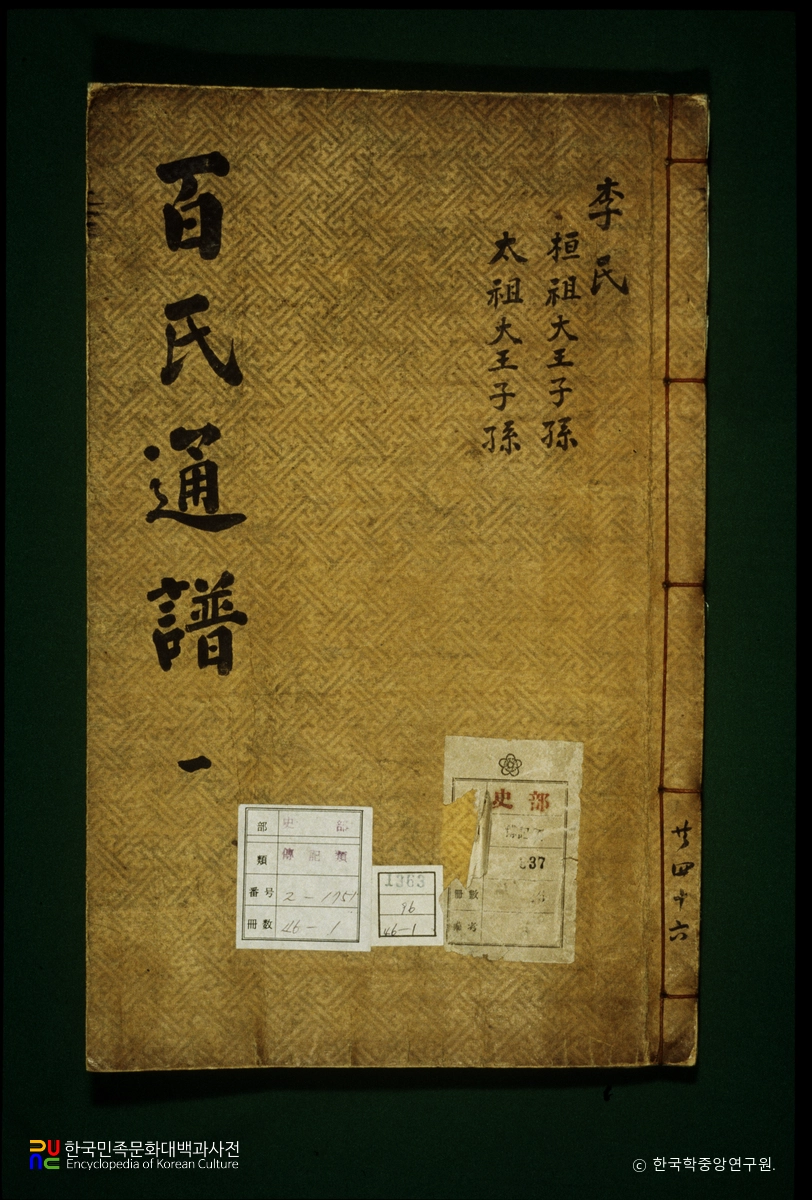 共四十六
李民
桓祖大王子孫
太祖大王子孫
百氏通譜 一
部 史部
類 傳記類
番号 2-1951
冊數 46-1
1363
96
46-1
史部
37
冊數
한국민족문화대백과사전
Encyclopedia of Korean Culture
© 한국학중앙연구원.